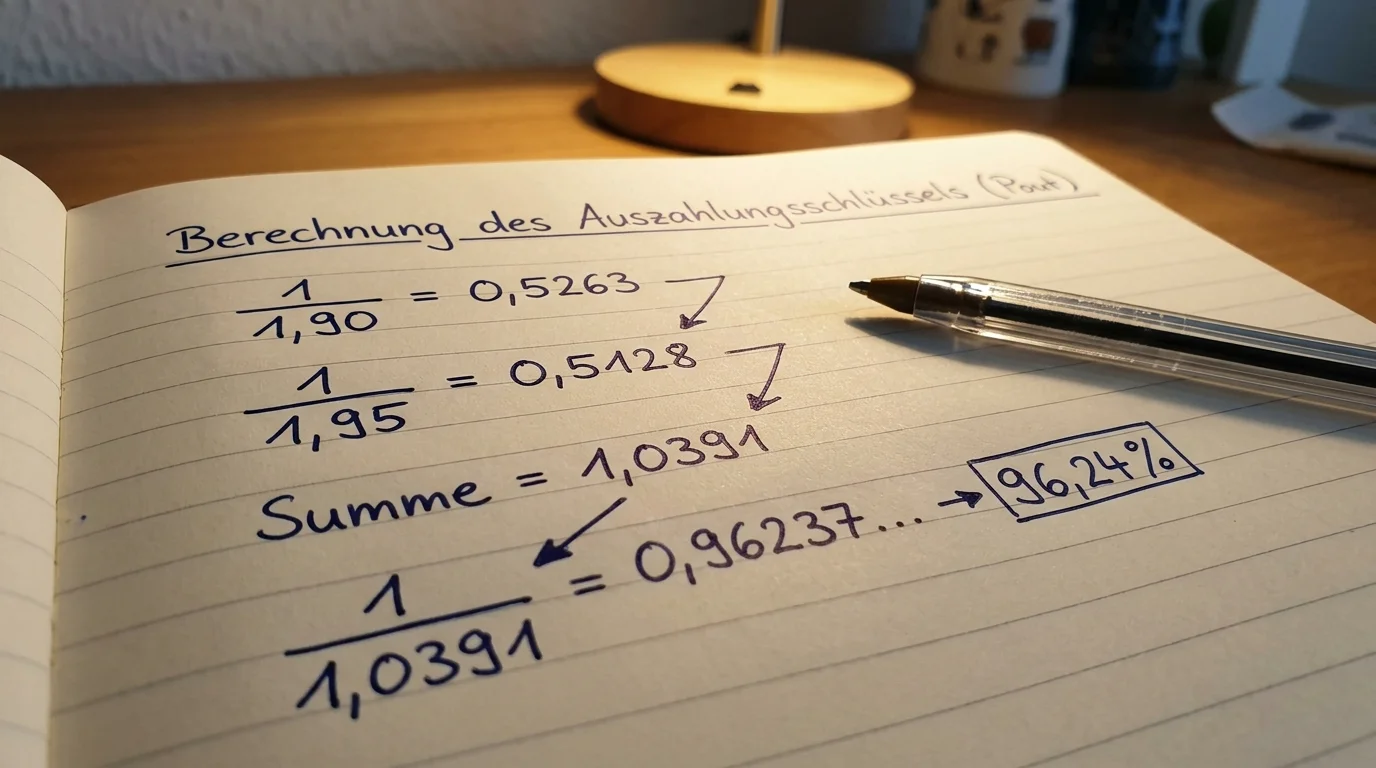 Berechnung des Auszahlungsschlüssels (Pout)
1/1,90 = 0,5263
1/1,95 = 0,5128
Summe = 1,0391
1/1,0391 = 0,96237... → 96,24%